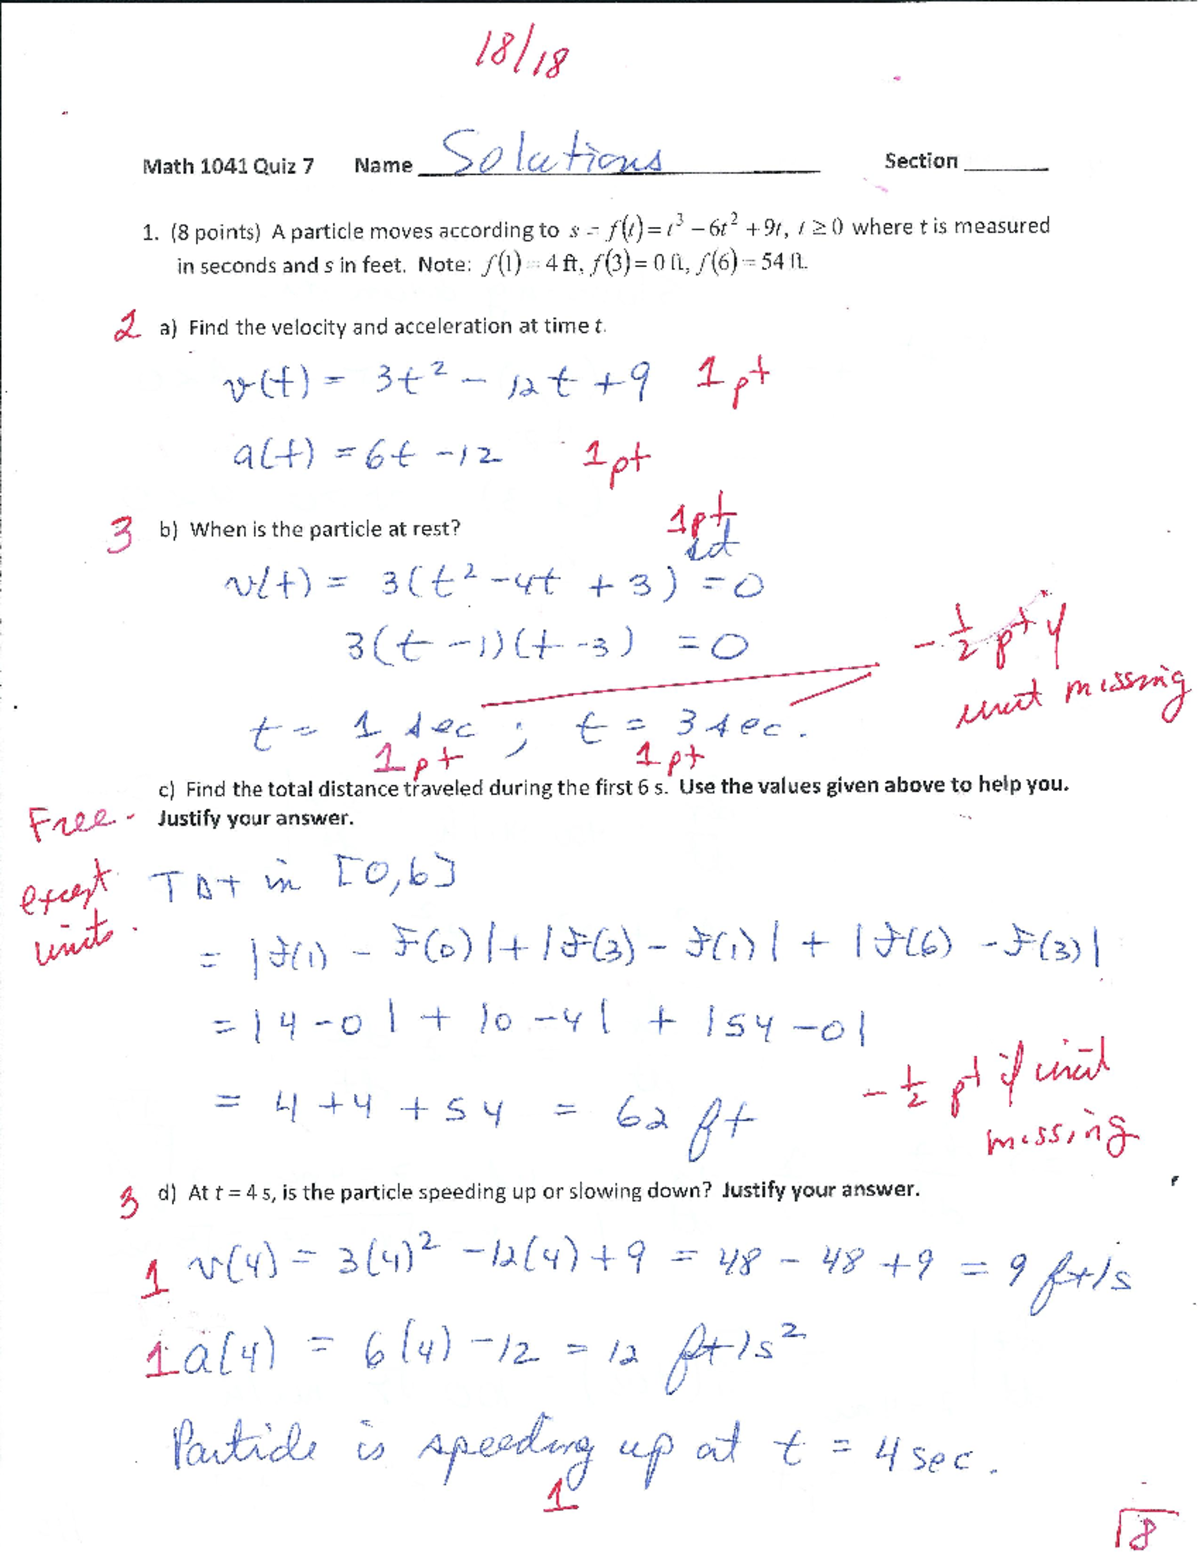 18/18
Math 1041 Quiz 7 Name Solutions Section
1. (8 points) A particle moves according to s = f(t) = t³ − 6t² + 9t, t ≥ 0 where t is measured
in seconds and s in feet. Note: f(1) = 4 ft, f(3) = 0 ft, f(6) = 54 ft.
2 a) Find the velocity and acceleration at time t.
v(t) = 3t² − 12t + 9 1 pt
a(t) = 6t − 12 1 pt
3 b) When is the particle at rest? 1pt
set
v(t) = 3(t² − 4t + 3) = 0
3(t − 1)(t − 3) = 0
− 1/2 pt if
unit missing
t = 1 sec ; t = 3 sec.
1 pt 1 pt
c) Find the total distance traveled during the first 6 s. Use the values given above to help you.
Justify your answer.
Free -
except
units.
TDt in [0,6]
= |f(1) − f(0)| + |f(3) − f(1)| + |f(6) − f(3)|
= |4 − 0| + |0 − 4| + |54 − 0|
= 4 + 4 + 54 = 62 ft
− 1/2 pt if unit
missing
3 d) At t = 4 s, is the particle speeding up or slowing down? Justify your answer.
1 v(4) = 3(4)² − 12(4) + 9 = 48 − 48 + 9 = 9 ft/s
1 a(4) = 6(4) − 12 = 12 ft/s²
Particle is speeding up at t = 4 sec.
1
18